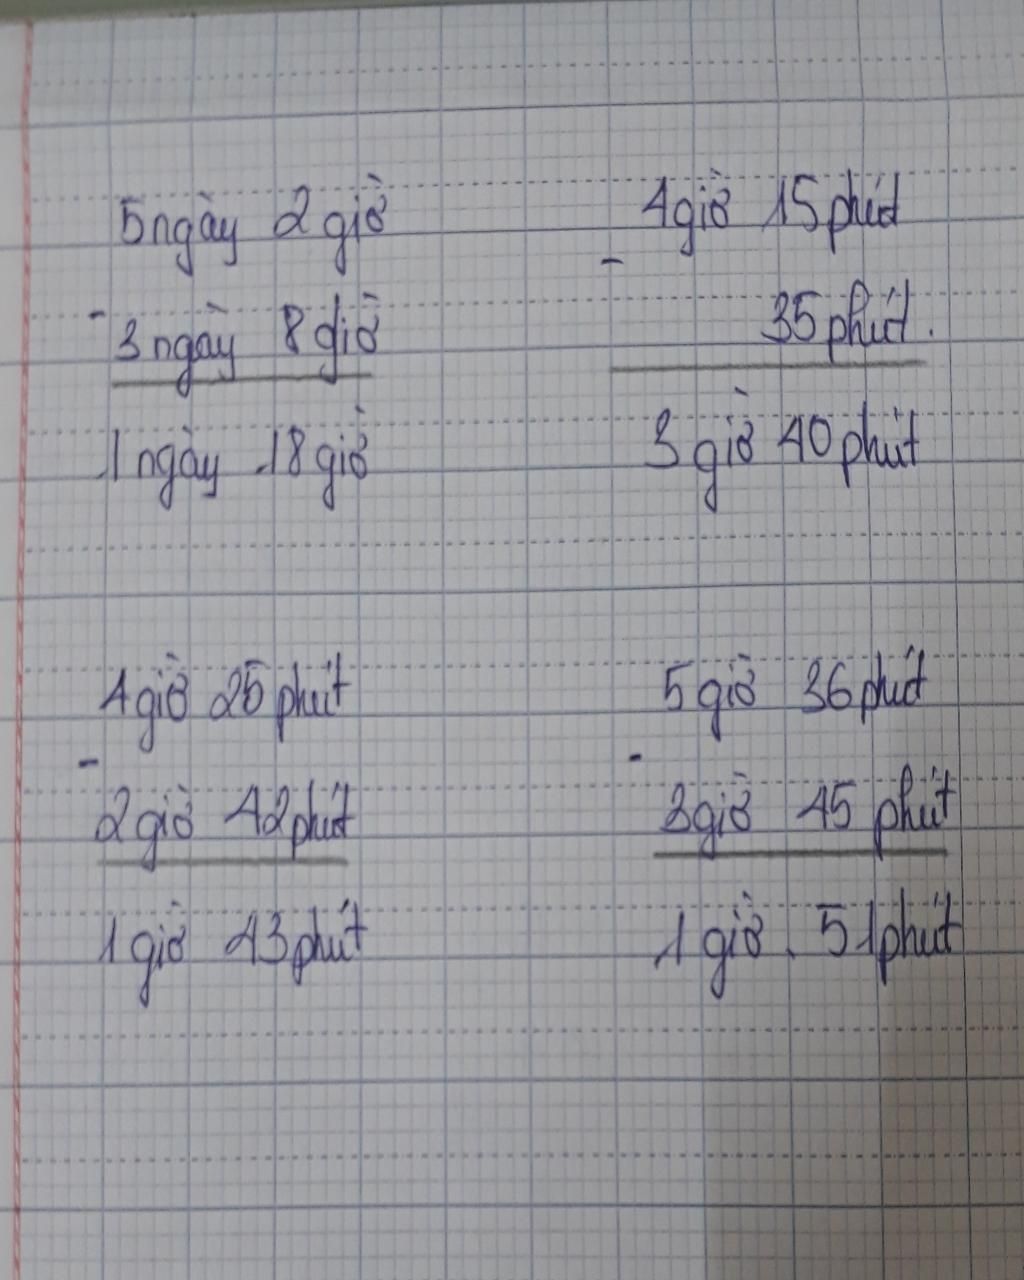 5 ngày 2 giờ
-
3 ngày 8 giờ
1 ngày 18 giờ
4 giờ 15 phút
-
35 phút.
3 giờ 40 phút
4 giờ 25 phút
-
2 giờ 42 phút
1 giờ 43 phút
5 giờ 36 phút
-
3 giờ 45 phút
1 giờ 51 phút